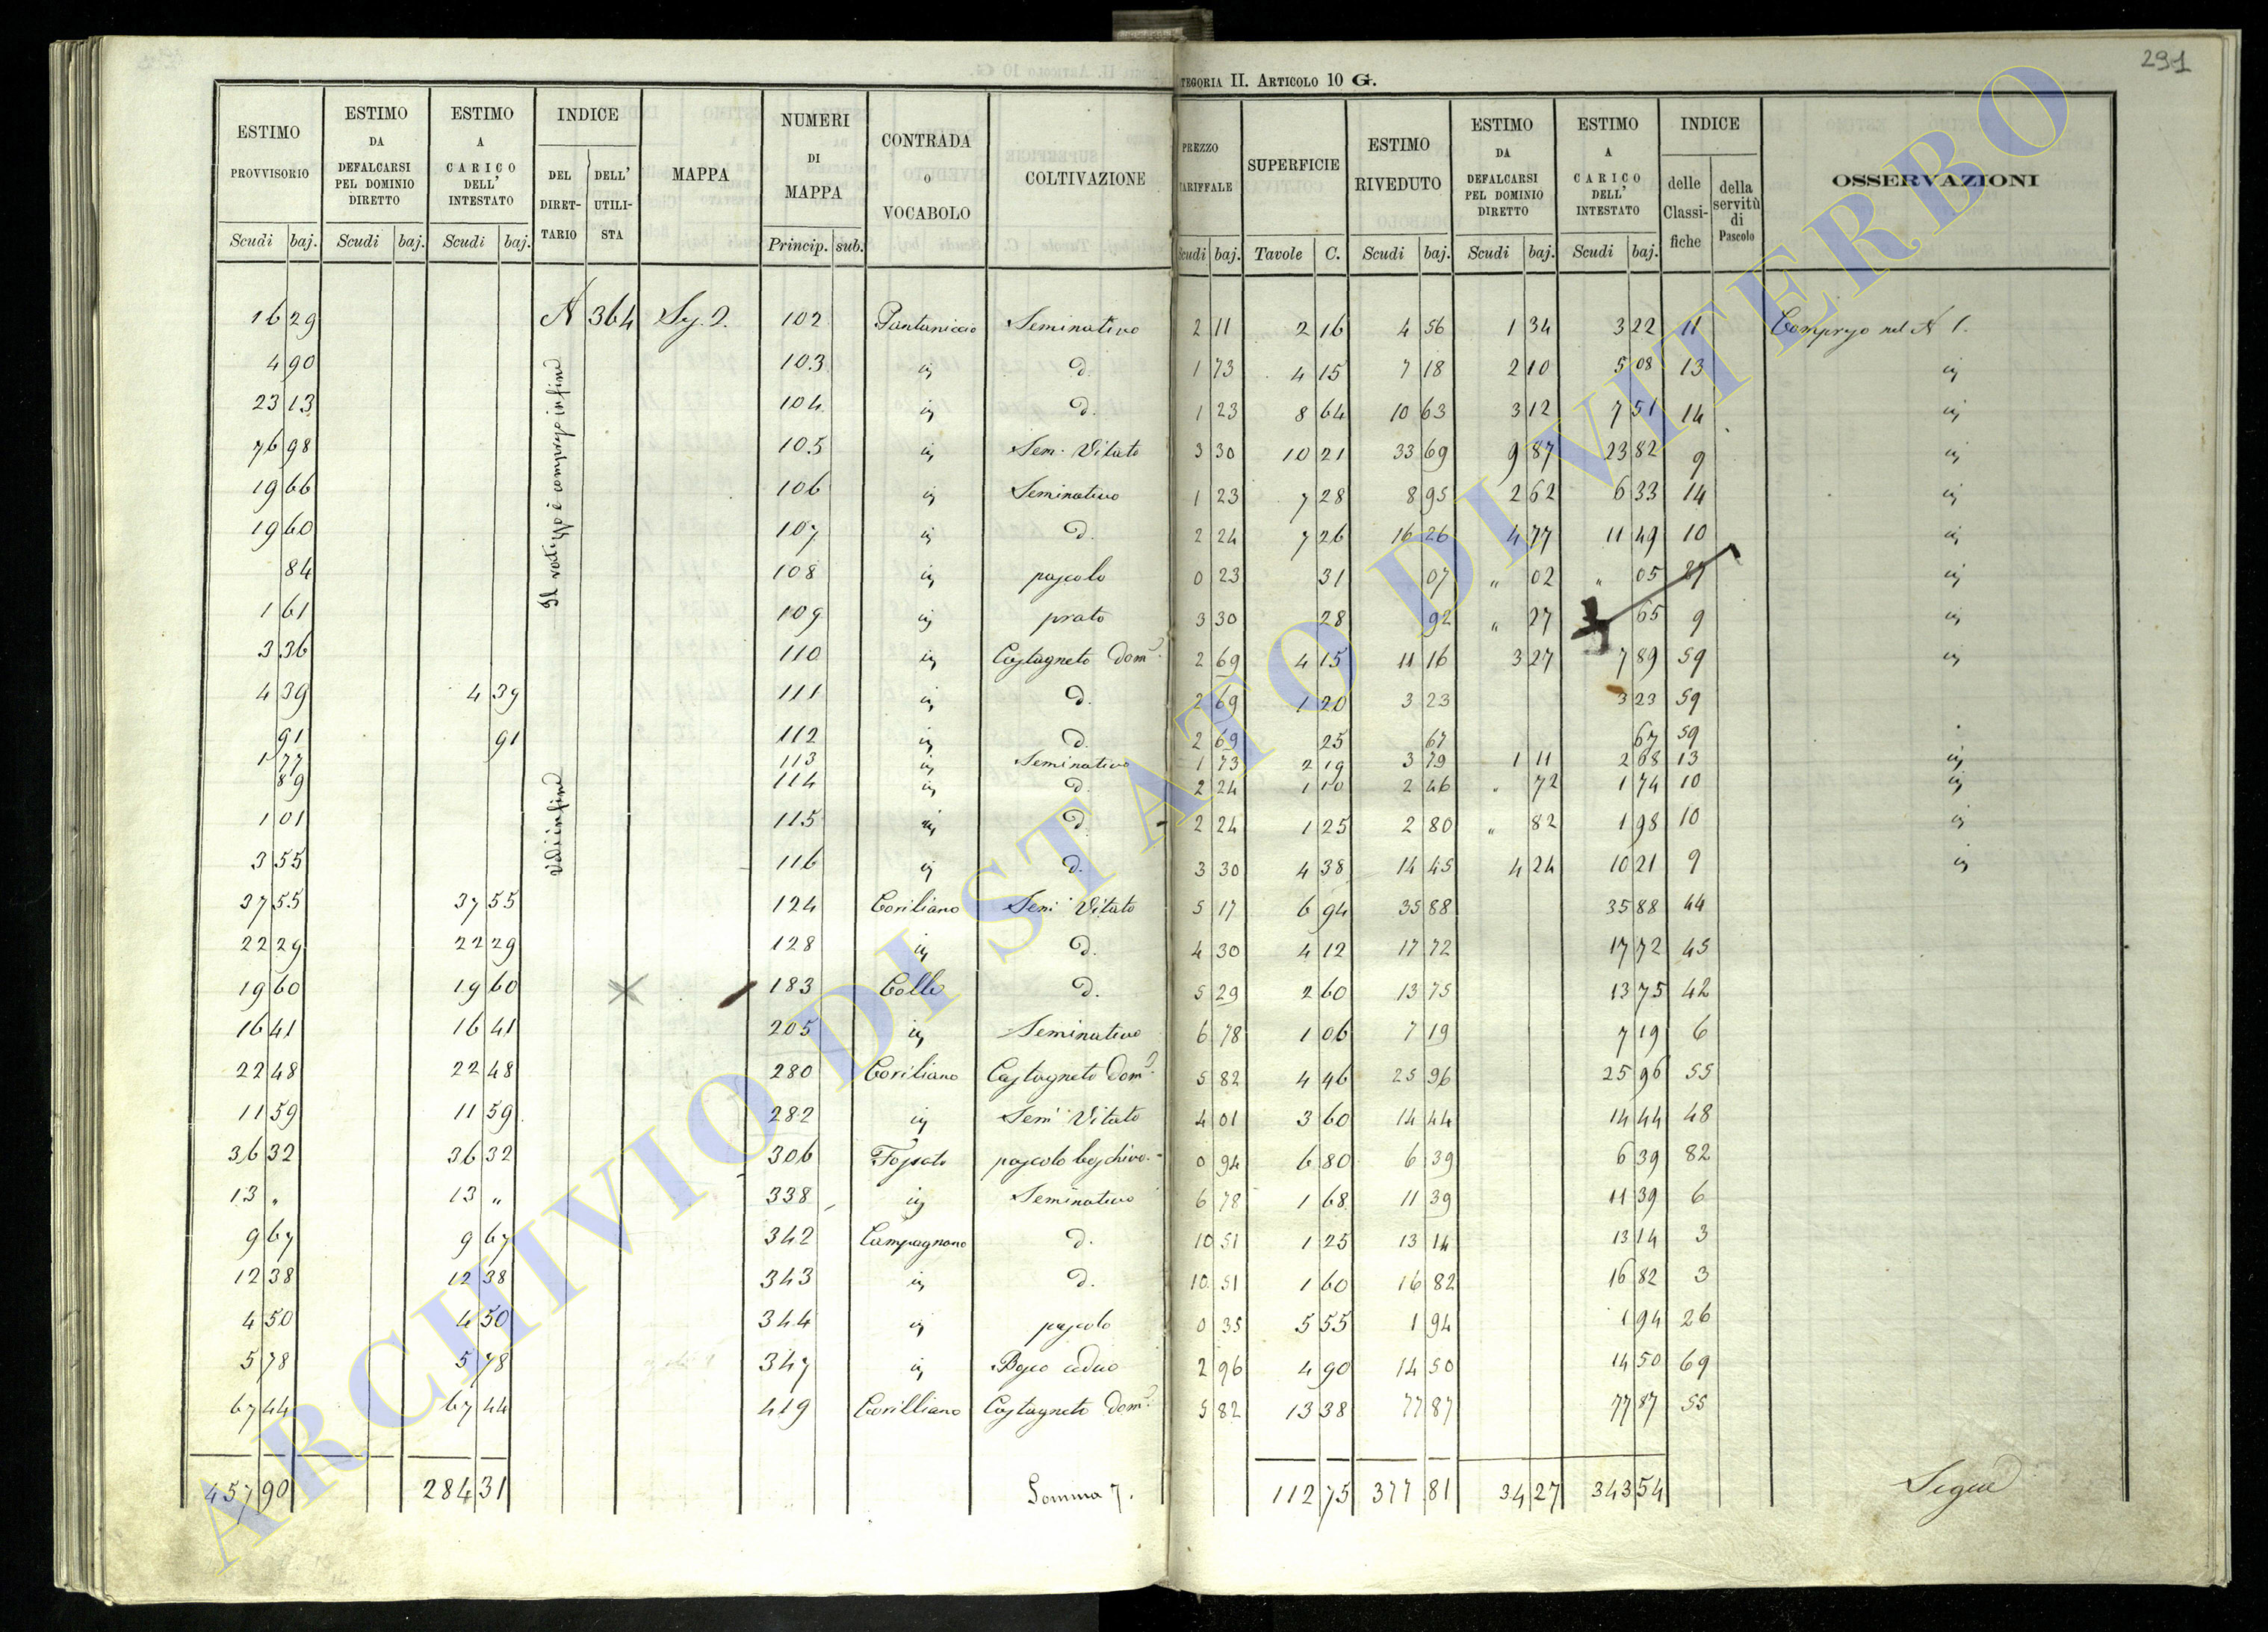 291
TEGORIA II. ARTICOLO 10 G.
ESTIMO PROVVISORIO | ESTIMO DA DEFALCARSI PEL DOMINIO DIRETTO | ESTIMO A CARICO DELL' INTESTATO | INDICE DEL DIRETTARIO | DELL' UTILISTA | MAPPA | NUMERI DI MAPPA | CONTRADA O VOCABOLO | COLTIVAZIONE | PREZZO TARIFFALE | SUPERFICIE | ESTIMO RIVEDUTO | ESTIMO DA DEFALCARSI PEL DOMINIO DIRETTO | ESTIMO A CARICO DELL' INTESTATO | INDICE delle Classifiche | della servitù di Pascolo | OSSERVAZIONI
Scudi baj. | Scudi baj. | Scudi baj. | Princip. sub. | Scudi baj. | Tavole C. | Scudi baj. | Scudi baj. | Scudi baj.
16 29 | N 364 | Sez. 2. | 102 | Pantaniccio | Seminativo | 2 11 | 2 16 | 4 56 | 1 34 | 3 22 | 11 | Compreso nel N 1.
4 90 | 103 | id | d. | 1 73 | 4 15 | 7 18 | 2 10 | 5 08 | 13 | id
23 13 | 104 | id | d. | 1 23 | 8 64 | 10 63 | 3 12 | 7 51 | 14 | id
76 98 | 105 | id | Sem. Vitato | 3 30 | 10 21 | 33 69 | 9 87 | 23 82 | 9 | id
19 66 | 106 | id | Seminativo | 1 23 | 7 28 | 8 95 | 2 62 | 6 33 | 14 | id
19 60 | 107 | id | d. | 2 24 | 7 26 | 16 26 | 4 77 | 11 49 | 10 | id
84 | 108 | id | pascolo | 0 23 | 31 | 07 | " 02 | " 05 | 27 | id
1 61 | 109 | id | prato | 3 30 | 28 | 92 | " 27 | 65 | 9 | id
3 36 | 110 | id | Castagneto Dom.o | 2 69 | 4 15 | 11 16 | 3 27 | 7 89 | 59 | id
4 39 | 4 39 | 111 | id | d. | 2 69 | 1 20 | 3 23 | 3 23 | 59
91 | 91 | 112 | id | d. | 2 69 | 25 | 67 | 67 | 59
1 77 | 113 | id | Seminativo | 1 73 | 2 19 | 3 79 | 1 11 | 2 68 | 13 | id
89 | 114 | id | d. | 2 24 | 1 10 | 2 46 | " 72 | 1 74 | 10 | id
1 01 | 115 | id | d. | 2 24 | 1 25 | 2 80 | " 82 | 1 98 | 10 | id
3 55 | 116 | id | d. | 3 30 | 4 38 | 14 45 | 4 24 | 10 21 | 9 | id
37 55 | 37 55 | 124 | Coriliano | Sem. Vitato | 5 17 | 6 94 | 35 88 | 35 88 | 44
22 29 | 22 29 | 128 | id | d. | 4 30 | 4 12 | 17 72 | 17 72 | 45
19 60 | 19 60 | 183 | Colle | d. | 5 29 | 2 60 | 13 75 | 13 75 | 42
16 41 | 16 41 | 205 | id | Seminativo | 6 78 | 1 06 | 7 19 | 7 19 | 6
22 48 | 22 48 | 280 | Coriliano | Castagneto Dom.o | 5 82 | 4 46 | 25 96 | 25 96 | 55
11 59 | 11 59 | 282 | id | Sem. Vitato | 4 01 | 3 60 | 14 44 | 14 44 | 48
36 32 | 36 32 | 306 | Fossato | pascolo boschivo | 0 94 | 6 80 | 6 39 | 6 39 | 82
13 " | 13 " | 338 | id | Seminativo | 6 78 | 1 68 | 11 39 | 11 39 | 6
9 67 | 9 67 | 342 | Campagnano | d. | 10 51 | 1 25 | 13 14 | 13 14 | 3
12 38 | 12 38 | 343 | id | d. | 10 51 | 1 60 | 16 82 | 16 82 | 3
4 50 | 4 50 | 344 | id | pascolo | 0 35 | 5 55 | 1 94 | 1 94 | 26
5 78 | 5 78 | 347 | id | Bosco ceduo | 2 96 | 4 90 | 14 50 | 14 50 | 69
67 44 | 67 44 | 419 | Corilliano | Castagneto Dom.o | 5 82 | 13 38 | 77 87 | 77 87 | 55
457 90 | 284 31 | Somma 7. | 112 75 | 377 81 | 34 27 | 343 54 | Segue
vedi infine
ARCHIVIO DI STATO DI VITERBO